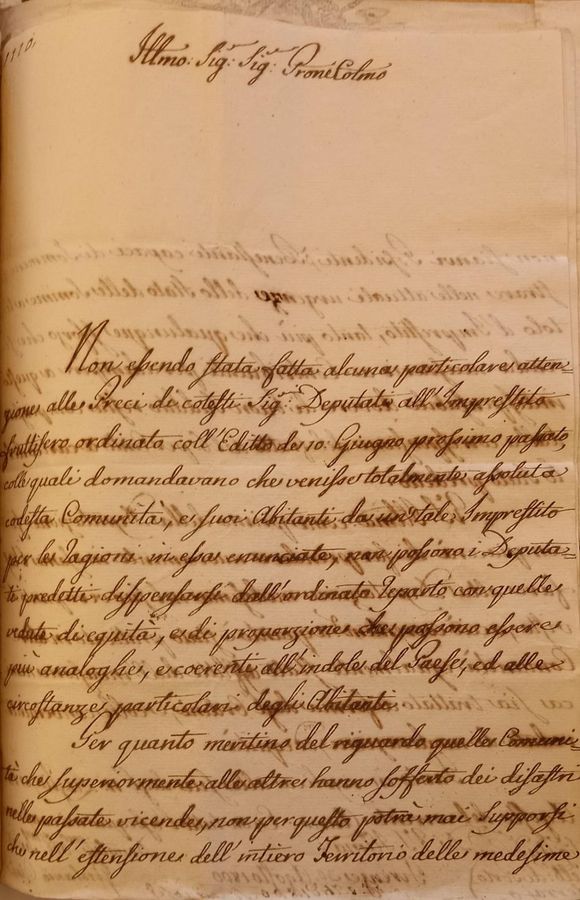 Illmo: Sig:r Sig:r Prone Colmo
Non essendo stata fatta alcuna particolare atten=
zione alle Preci di cotesti Sig:i Deputati all'Imprestito
fruttifero ordinato coll'Editto de 10: Giugno prossimo passato,
colle quali domandavano che venisse totalmente assoluta
codesta Comunità, e suoi Abitanti da un tale Imprestito
per le ragioni in essa enunciate, non possono i Deputa=
ti predetti dispensarsi dall'ordinato reparto con quelle
vedute di equità, e di proporzione che possono essere
più analoghe, e coerenti all'indole del Paese, ed alle
circostanze particolari degli Abitanti.
Per quanto meritino del riguardo quelle Comuni=
tà che superiormente alle altre hanno sofferto dei disastri
nelle passate vicende, non per questo potrà mai supporsi
che nell'estensione dell'intiero Territorio delle medesime